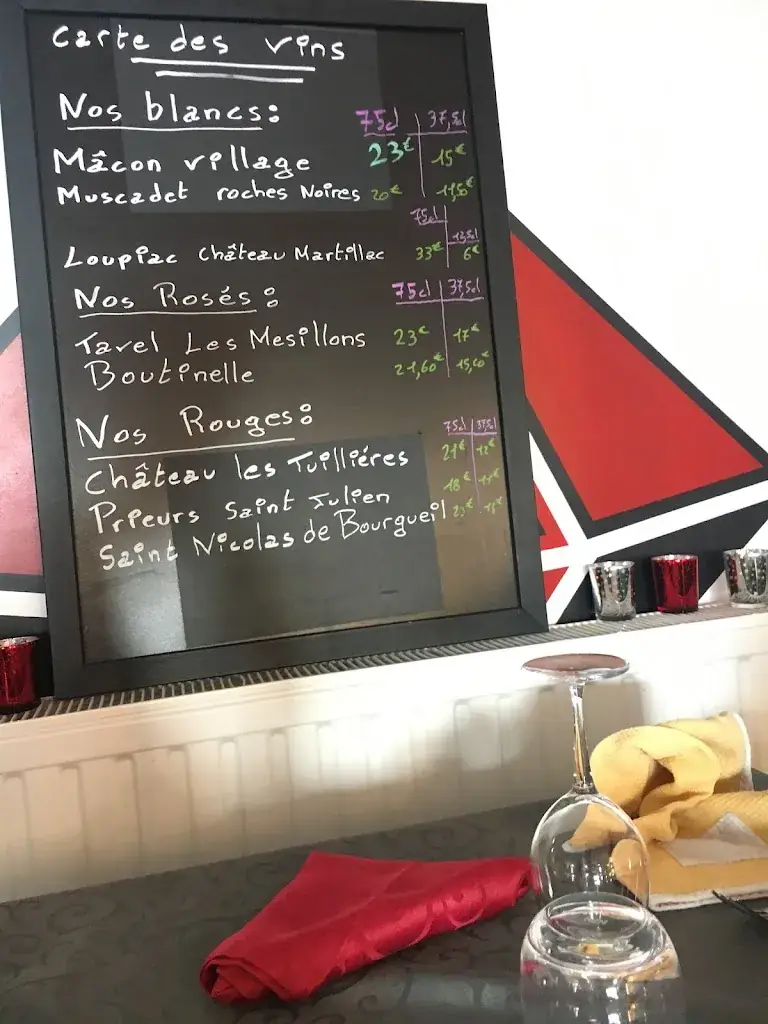 Carte des vins
Nos blancs: 75cl 37,5cl
Mâcon village 23€ 15€
Muscadet roches Noires 20€ 11,50€
75cl 12,5cl
Loupiac Château Martillac 33€ 6€
Nos Rosés: 75cl 37,5cl
Tavel Les Mesillons 23€ 17€
Boutinelle 21,60€ 15,60€
Nos Rouges: 75cl 37,5cl
Château les Tuillières
Prieurs Saint Julien 18€
Saint Nicolas de Bourgueil